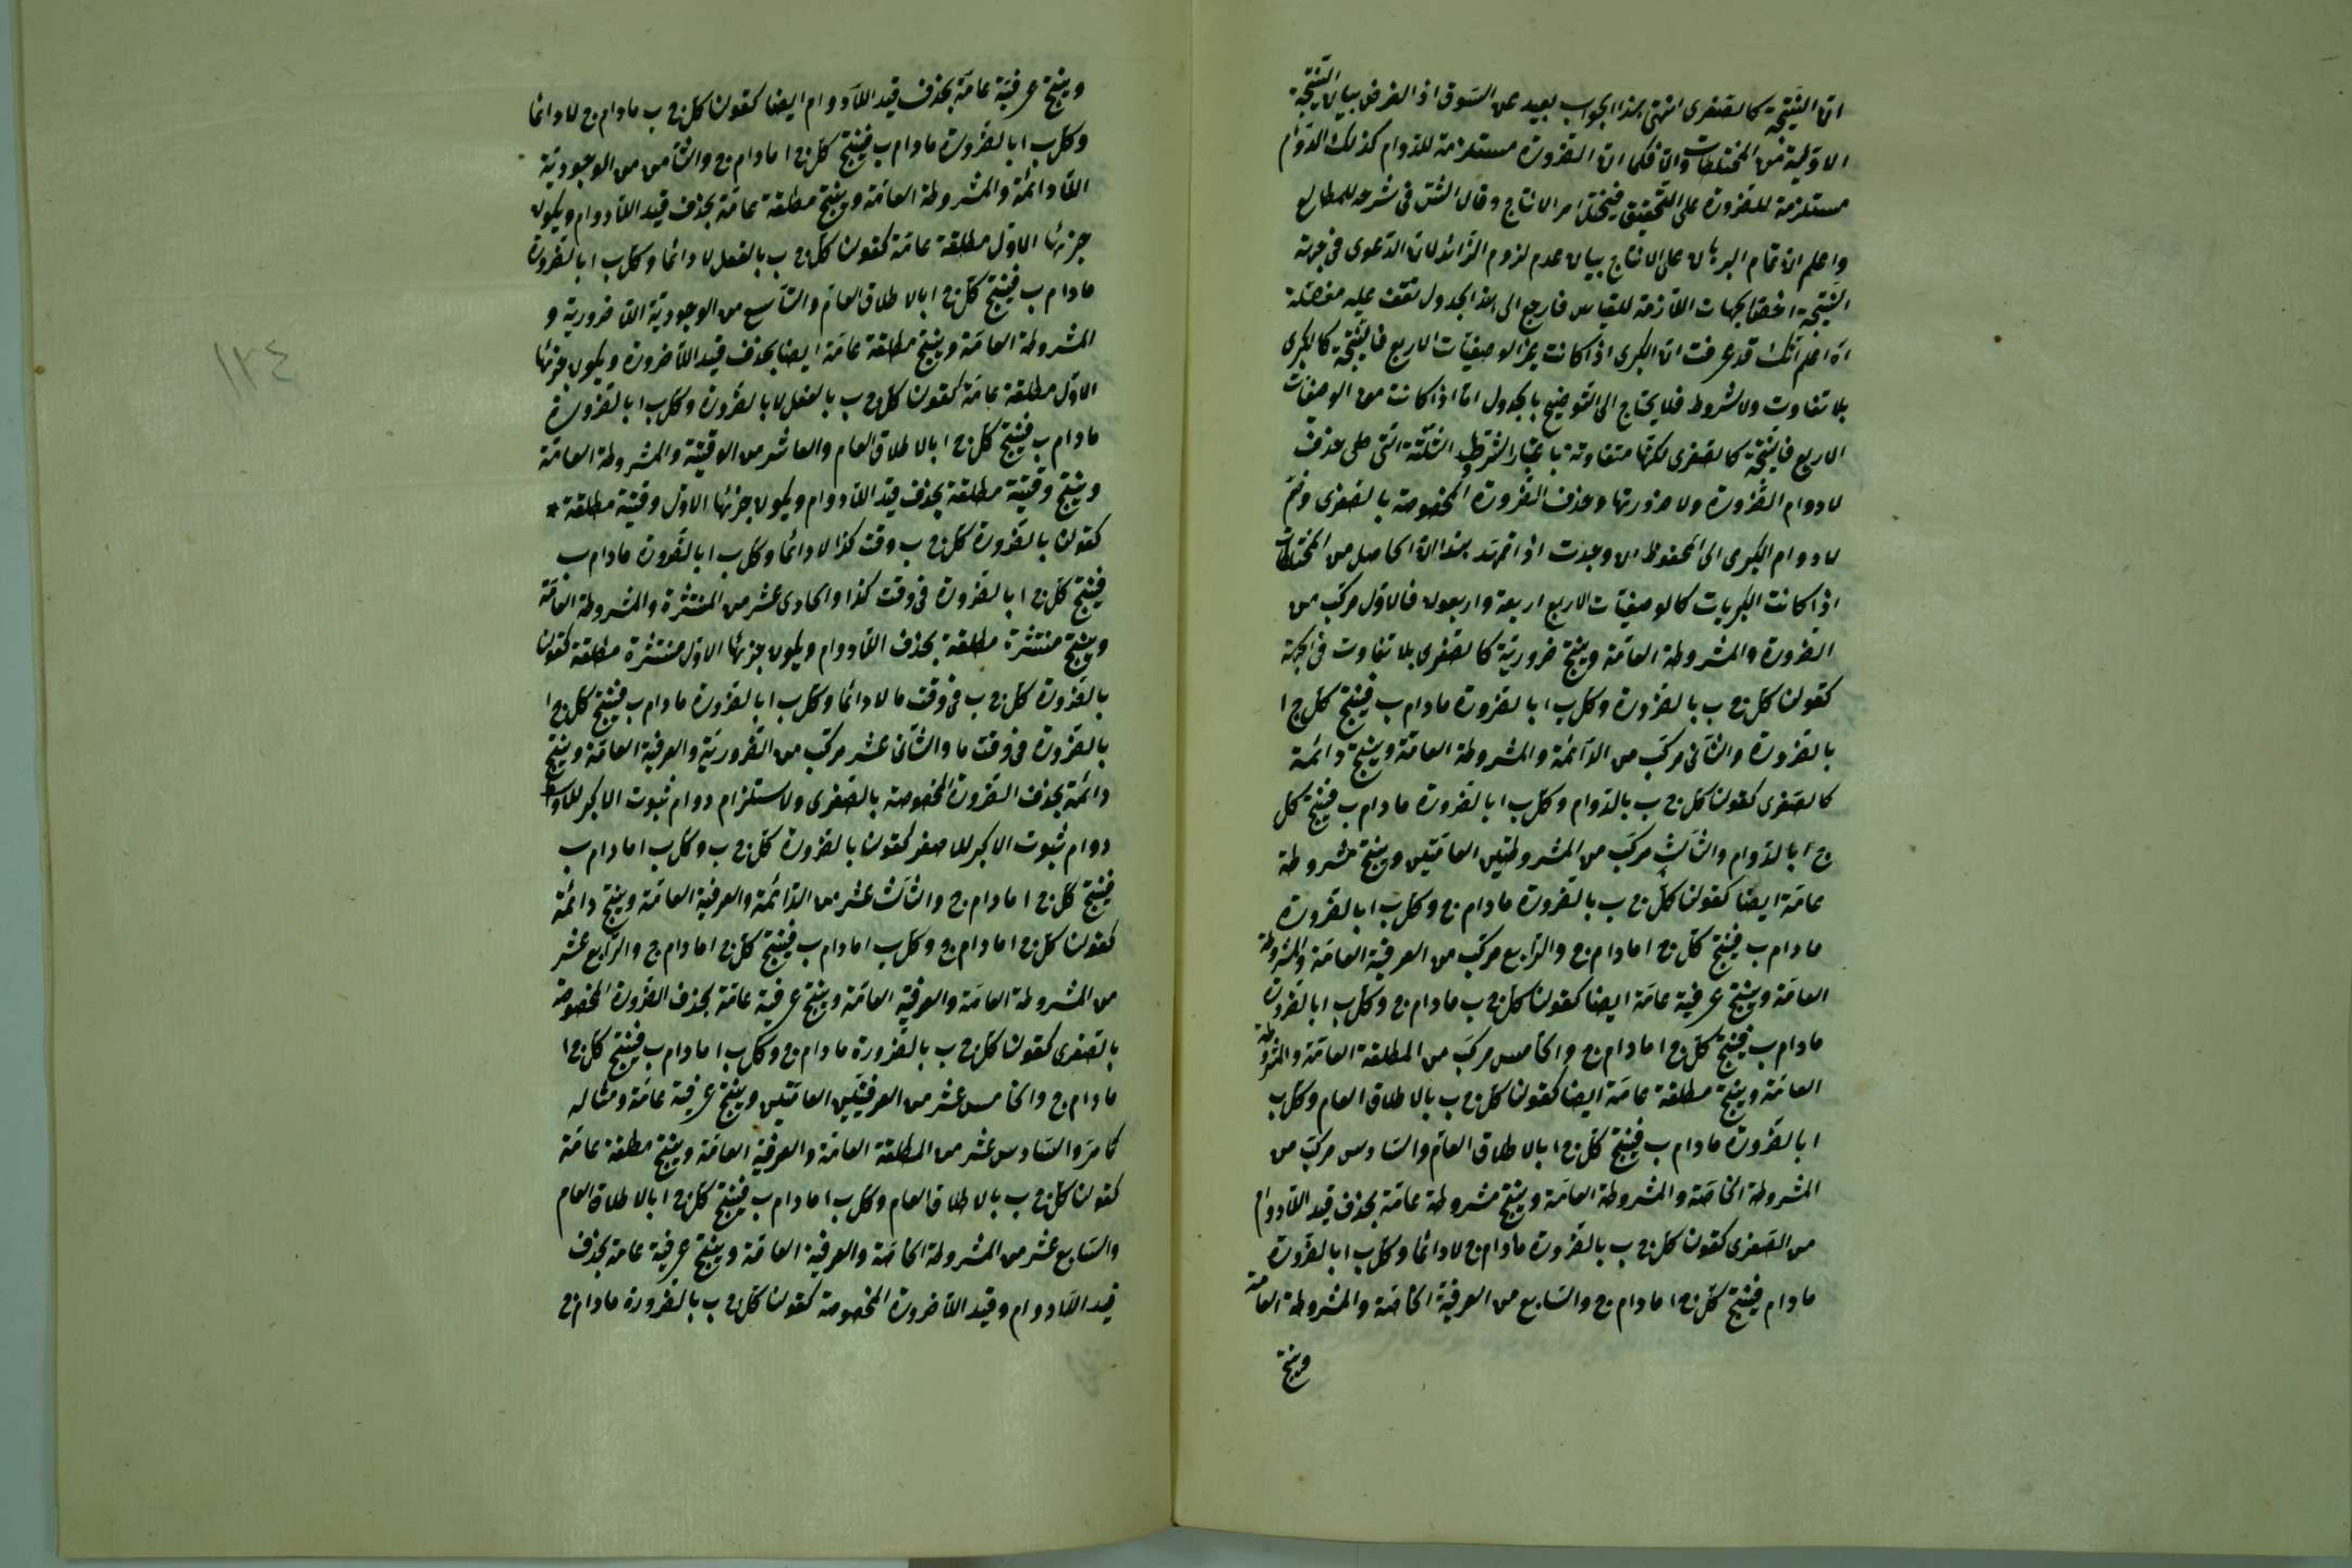 ان النتيجة كالصغرى انتهى هذا الجواب بعيد عن السوق اذ الغرض بيان النتيجة
الاولية من المختلطات والا فكما ان الضرورة مستلزمة للدوام كذلك الدوام
مستلزمة للضرورة على التحقيق فيختل امر الانتاج وقال الش فى شرحه للمطالع
واعلم ان تمام البرهان على الانتاج بيان عدم لزوم الزائد لان الدعوى فى جهة
النتيجة اخص الجهات اللازمة للقياس فارجع الى هذا الجدول تقف عليه مفصلة
اه اعلم انك قد عرفت ان الكبرى اذا كانت غير الوصفيات الاربع فالنتيجة كالكبرى
بلا تفاوت ولا شروط فلا يحتاج الى التوضيح بالجدول اما اذا كانت من الوصفيات
الاربع فالنتيجة كالصغرى لكنها متفاوتة باعتبار الشروط الثلثة التى هى حذف
لا دوام الضرورة ولا ضرورتها وحذف الضرورة المخصوصة بالصغرى وضم
لا دوام الكبرى الى المحفوظ ان وجدت اذا تمهد هذا ان الحاصل من المختلطات
اذا كانت الكبريات كالوصفيات الاربع اربعة واربعون فالاول مركب من
الضرورة والمشروطة العامة وينتج ضرورية كالصغرى بلا تفاوت فى الجهة
كقولنا كل ج ب بالضرورة وكل ب ا بالضرورة مادام ب فينتج كل ج ا
بالضرورة والثانى مركب من الدائمة والمشروطة العامة وينتج دائمة
كالصغرى كقولنا كل ج ب بالدوام وكل ب ا بالضرورة مادام ب فينتج كل
ج ا بالدوام والثالث مركب من المشروطتين العامتين وينتج مشروطة
عامة ايضا كقولنا كل ج ب بالضرورة مادام ج وكل ب ا بالضرورة
مادام ب فينتج كل ج ا مادام ج والرابع مركب من العرفية العامة والمشروطة
العامة وينتج عرفية عامة ايضا كقولنا كل ج ب مادام ج وكل ب ا بالضرورة
مادام ب فينتج كل ج ا مادام ج والخامس مركب من المطلقة العامة والمشروطة
العامة وينتج مطلقة عامة ايضا كقولنا كل ج ب بالاطلاق العام وكل ب
ا بالضرورة مادام ب فينتج كل ج ا بالاطلاق العام والسادس مركب من
المشروطة الخاصة والمشروطة العامة وينتج مشروطة عامة بحذف قيد اللادوام
من الصغرى كقولنا كل ج ب بالضرورة مادام ج لادائما وكل ب ا بالضرورة
مادام فينتج كل ج ا مادام ج والسابع من العرفية الخاصة والمشروطة العامة
وينتج
وينتج عرفية عامة بحذف قيد اللادوام ايضا كقولنا كل ج ب مادام ج لادائما
وكل ب ا بالضرورة مادام ب فينتج كل ج ا مادام ج والثامن من الوجودية
اللادائمة والمشروطة العامة وينتج مطلقة عامة بحذف قيد اللادوام ويكون
جزئها الاول مطلقة عامة كقولنا كل ج ب بالفعل لادائما وكل ب ا بالضرورة
مادام ب فينتج كل ج ا بالاطلاق العام والتاسع من الوجودية اللاضرورية و
المشروطة العامة وينتج مطلقة عامة ايضا بحذف قيد اللاضرورة ويكون جزئها
الاول مطلقة عامة كقولنا كل ج ب بالفعل لا بالضرورة وكل ب ا بالضرورة
مادام ب فينتج كل ج ا بالاطلاق العام والعاشر من الوقتية والمشروطة العامة
وينتج وقتية مطلقة بحذف قيد اللادوام ويكون جزئها الاول وقتية مطلقة *
كقولنا بالضرورة كل ج ب وقت كذا لادائما وكل ب ا بالضرورة مادام ب
فينتج كل ج ا بالضرورة فى وقت كذا والحادى عشر من المنتشرة والمشروطة العامة
وينتج منتشرة مطلقة بحذف اللادوام ويكون جزئها الاول منتشرة مطلقة كقولنا
بالضرورة كل ج ب فى وقت ما لادائما وكل ب ا بالضرورة مادام ب فينتج كل ج ا
بالضرورة فى وقت ما والثانى عشر مركب من الضرورية والعرفية العامة وينتج
دائمة بحذف الضرورة المخصوصة بالصغرى ولاستلزام دوام ثبوت الاكبر للاوسط
دوام ثبوت الاكبر للاصغر كقولنا بالضرورة كل ج ب وكل ب ا مادام ب
فينتج كل ج ا مادام ج والثالث عشر من الدائمة والعرفية العامة وينتج دائمة
كقولنا كل ج ا مادام ج وكل ب ا مادام ب فينتج كل ج ا مادام ج والرابع عشر
من المشروطة العامة والعرفية العامة وينتج عرفية عامة بحذف الضرورة المخصوصة
بالصغرى كقولنا كل ج ب بالضرورة مادام ج وكل ب ا مادام ب فينتج كل ج ا
مادام ج والخامس عشر من العرفيتين العامتين وينتج عرفية عامة ومثاله
كما مر والسادس عشر من المطلقة العامة والعرفية العامة وينتج مطلقة عامة
كقولنا كل ج ب بالاطلاق العام وكل ب ا مادام ب فينتج كل ج ا بالاطلاق العام
والسابع عشر من المشروطة الخاصة والعرفية العامة وينتج عرفية عامة بحذف
قيد اللادوام وقيد اللاضرورة المخصوصة كقولنا كل ج ب بالضرورة مادام ج
١٢٤